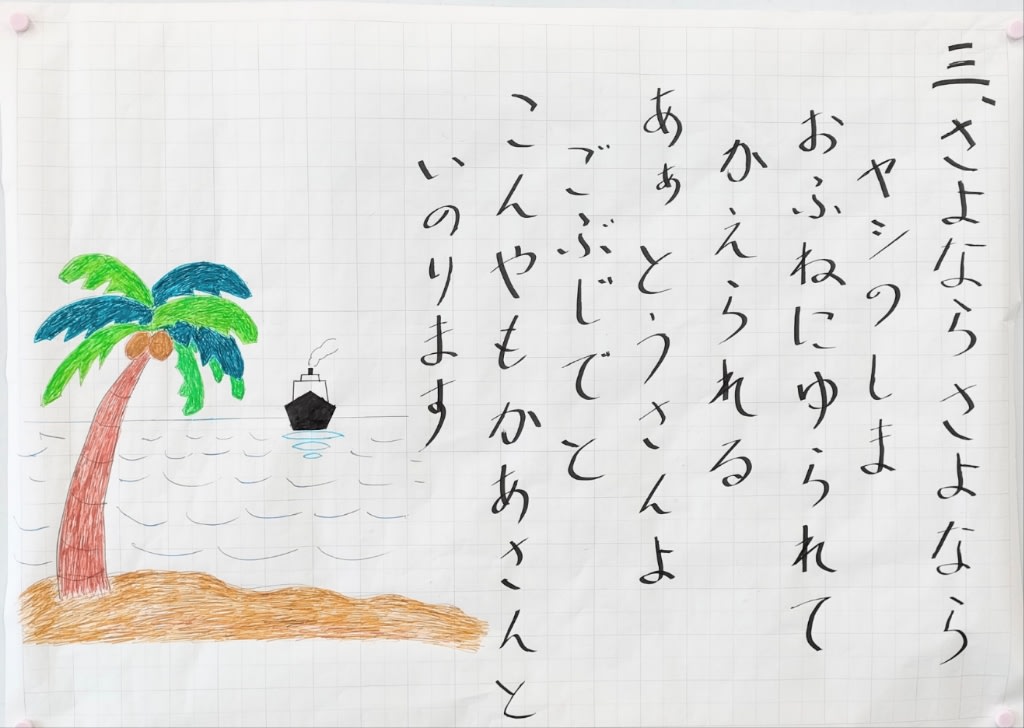 三、さよならさよなら
ヤシのしま
おふねにゆられて
かえられる
あぁとうさんよ
ごぶじでと
こんやもかあさんと
いのります